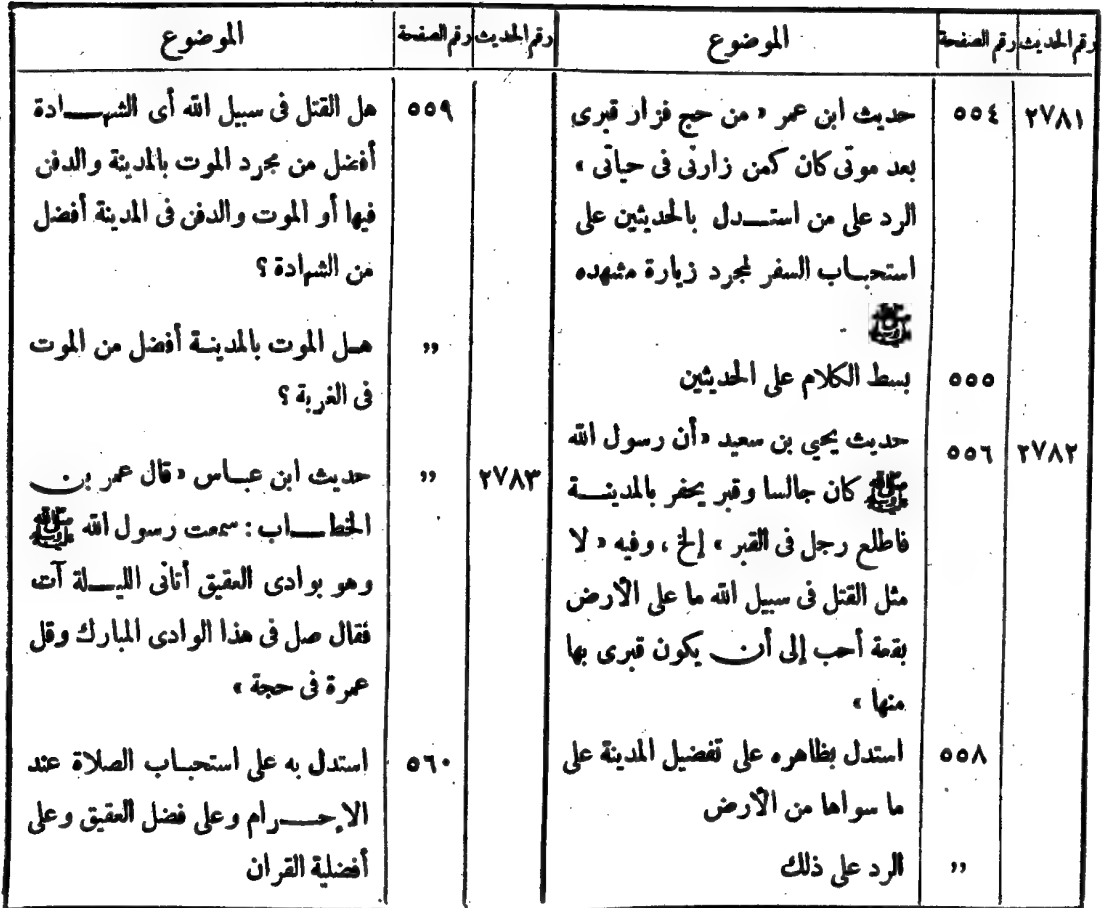 رقم الحديث رقم الصفحة الموضوع
٢٧٨١ ٥٥٤ حديث ابن عمر « من حج فزار قبرى
بعد موتى كان كمن زارنى فى حياتى »
الرد على من استدل بالحديثين على
استحباب السفر لمجرد زيارة مشهده
ﷺ
٥٥٥ بسط الكلام على الحديثين
٢٧٨٢ ٥٥٦ حديث يحيي بن سعيد «أن رسول الله
ﷺ كان جالسا وقبر يحفر بالمدينة
فاطلع رجل فى القبر » إلخ ، وفيه « لا
مثل القتل فى سبيل الله ما على الأرض
بقعة أحب إلى أن يكون قبرى بها
منها »
٥٥٨ استدل بظاهره على تفضيل المدينة على
ما سواها من الأرض
,, الرد على ذلك
رقم الحديث رقم الصفحة الموضوع
٥٥٩ هل القتل فى سبيل الله أى الشهادة
أفضل من مجرد الموت بالمدينة والدفن
فيها أو الموت والدفن فى المدينة أفضل
من الشهادة ؟
,, هل الموت بالمدينة أفضل من الموت
فى الغربة ؟
٢٧٨٣ ,, حديث ابن عباس «قال عمر بن
الخطاب : سمعت رسول الله ﷺ
وهو بوادى العقيق أتانى الليلة آت
فقال صل فى هذا الوادى المبارك وقل
عمرة فى حجة »
٥٦٠ استدل به على استحباب الصلاة عند
الإحرام وعلى فضل العقيق وعلى
أفضلية القران